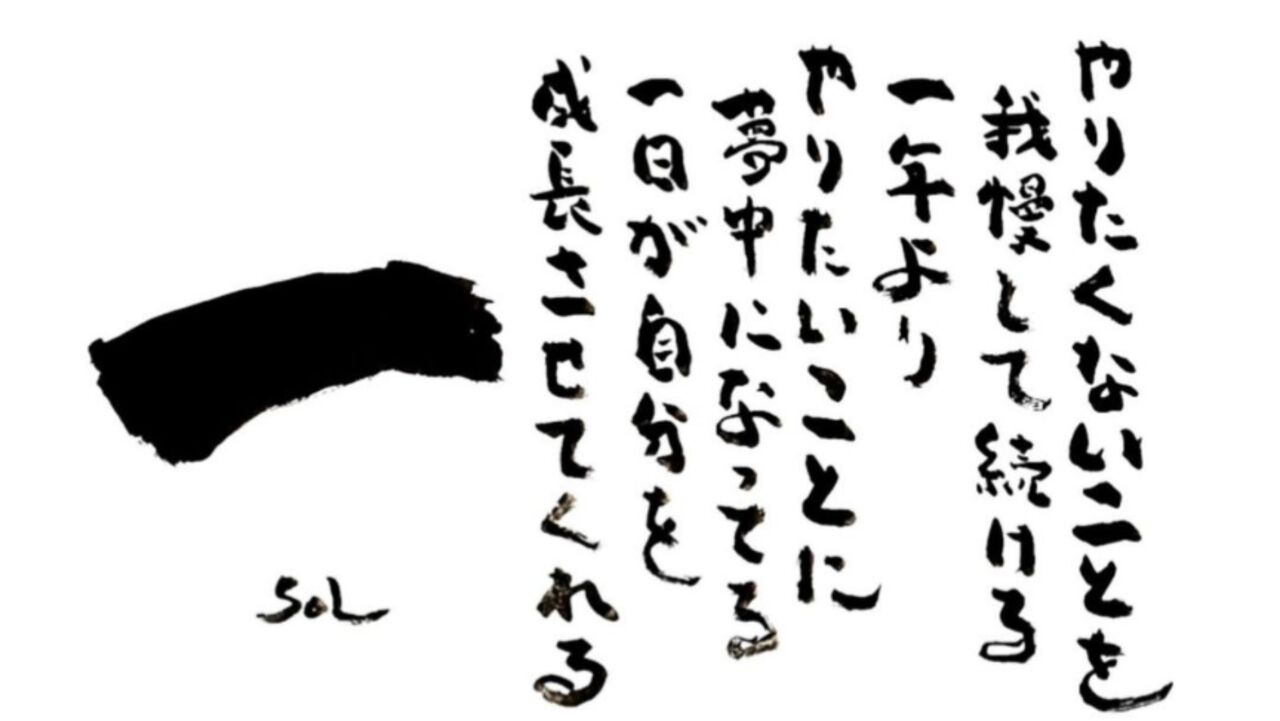 やりたくないことを
我慢して続ける
一年より
やりたいことに
夢中になってる
一日が自分を
成長させてくれる
SoL